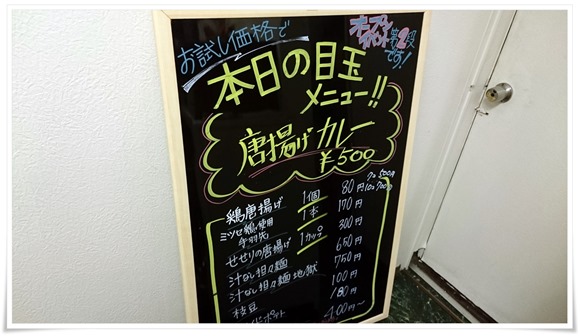 お試し価格で
オープン
イベント第2段
です!
本日の目玉
メニュー!!
唐揚げカレー
¥500
7コ 500円
10コ 700円
鶏唐揚げ 1個 80円
ミツセ鶏使用
手羽先 1本 170円
せせりの唐揚げ 1カップ 300円
汁なし担々麺 650円
汁なし担々麺 地獄 750円
枝豆 100円
180円
400円~